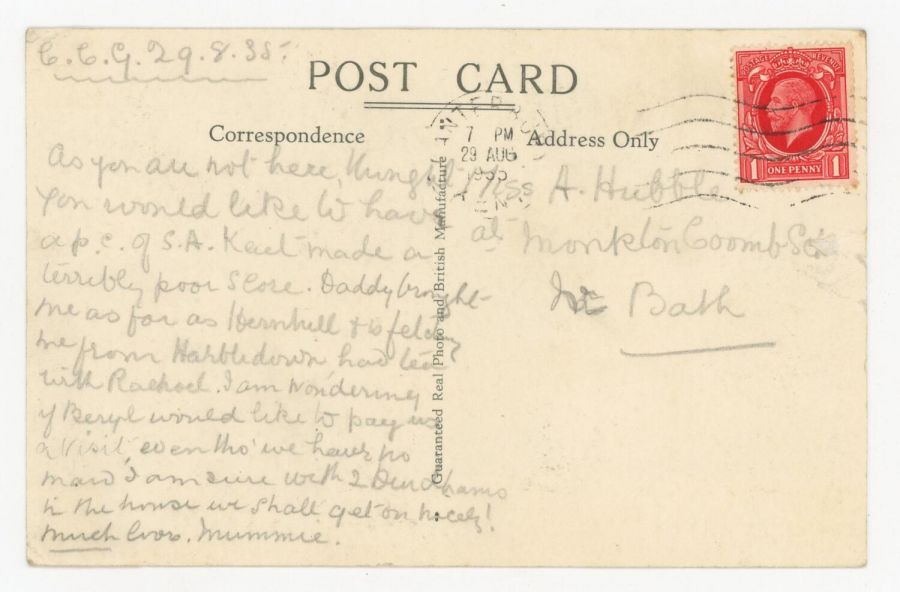 C.C.G. 29.8.35.
POST CARD
Correspondence
Address Only
POSTAGE REVENUE
1 ONE PENNY 1
7 PM
29 AUG
1935
KENT
As you are not here, thought
you would like to have
a p.c. of S.A. Kent made a
terribly poor score. Daddy brought
me as far as Hernhill & is fetching
me from Harbledown had tea
with Rachael. I am wondering
if Beryl would like to pay us
a visit, even tho' we have no
maid, I am sure with 2 Durhams
in the house we shall get on nicely!
much love. Mummie.
Miss A. Hubble
at Monkton Coomb Sch
Nr Bath
Guaranteed Real Photo and British Manufacture